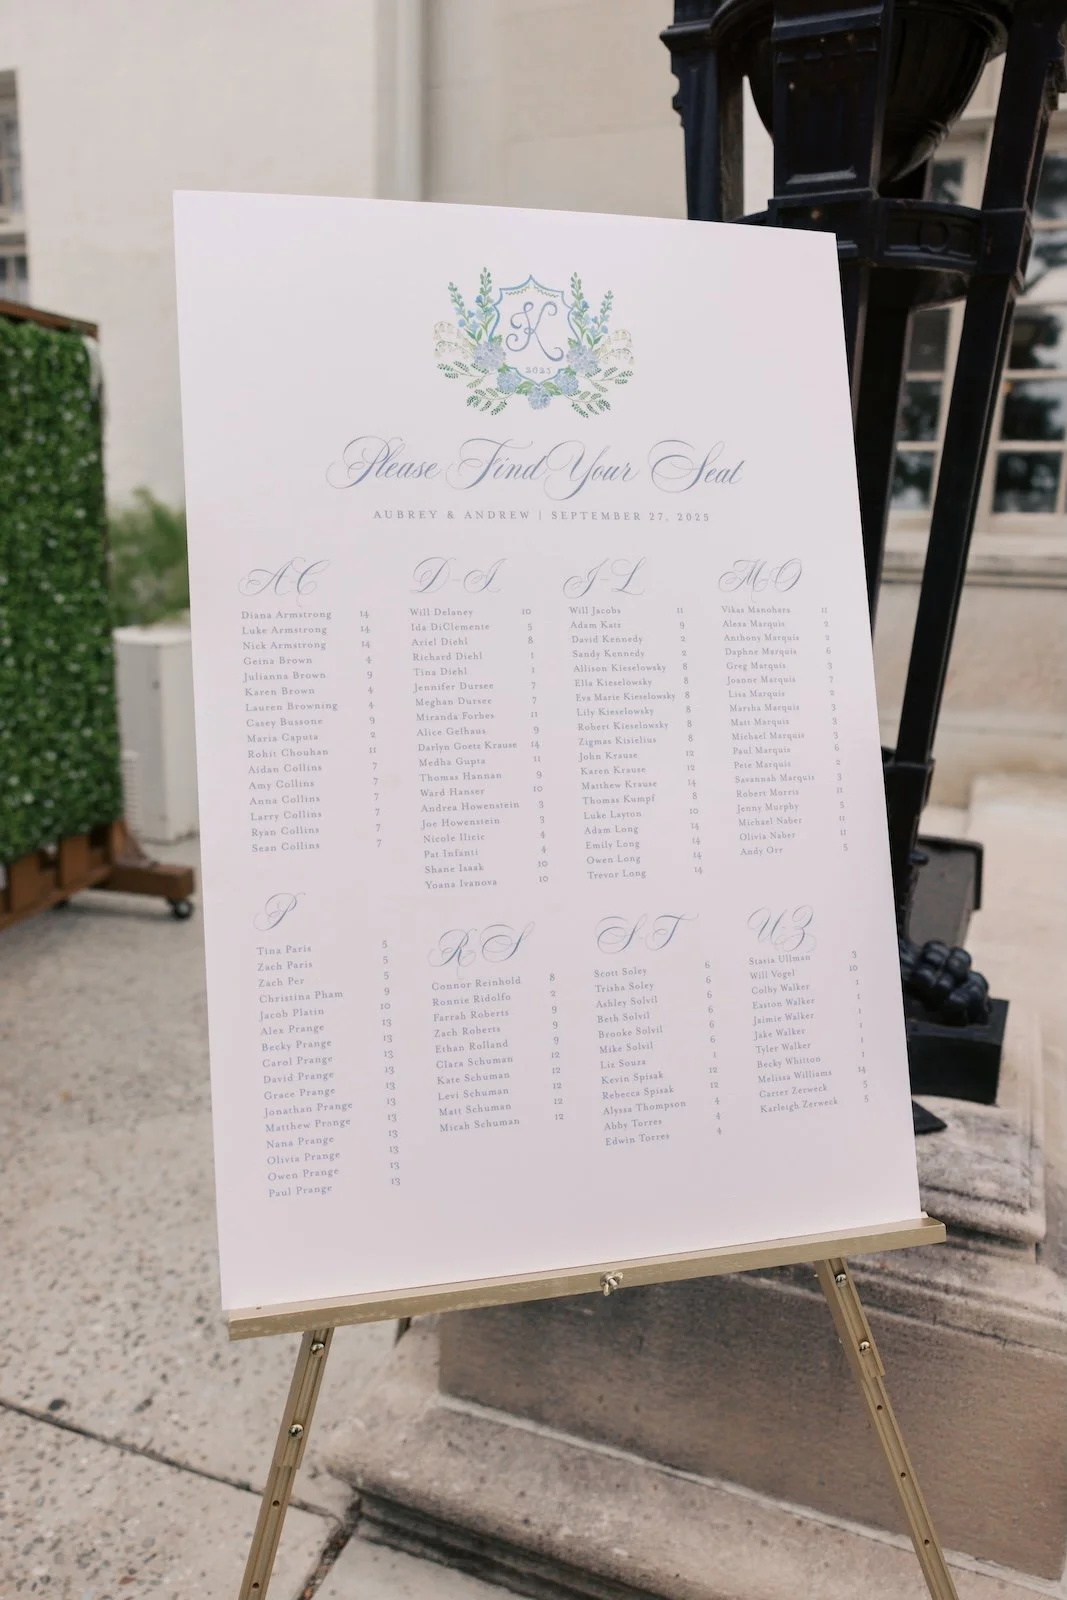 K
2025
Please Find Your Seat
AUBREY & ANDREW | SEPTEMBER 27, 2025
A-C
Diana Armstrong 14
Luke Armstrong 14
Nick Armstrong 14
Geina Brown 4
Julianna Brown 9
Karen Brown 4
Lauren Browning 4
Casey Bussone 9
Maria Caputa 2
Rohit Chouhan 11
Aidan Collins 7
Amy Collins 7
Anna Collins 7
Larry Collins 7
Ryan Collins 7
Sean Collins 7
D-I
Will Delaney 10
Ida DiClemente 5
Ariel Diehl 8
Richard Diehl 1
Tina Diehl 1
Jennifer Dursee 7
Meghan Dursee 7
Miranda Forbes 11
Alice Gelhaus 9
Darlyn Goetz Krause 14
Medha Gupta 11
Thomas Hannan 9
Ward Hanser 10
Andrea Howenstein 3
Joe Howenstein 3
Nicole Ilicic 4
Pat Infanti 4
Shane Isaak 10
Yoana Ivanova 10
J-L
Will Jacobs 11
Adam Kats 9
David Kennedy 2
Sandy Kennedy 2
Allison Kieselowsky 8
Ella Kieselowsky 8
Eva Marie Kieselowsky 8
Lily Kieselowsky 8
Robert Kieselowsky 8
Zigmas Kisielius 8
John Krause 12
Karen Krause 12
Matthew Krause 14
Thomas Kumpf 8
Luke Layton 10
Adam Long 14
Emily Long 14
Owen Long 14
Trevor Long 14
M-O
Vikas Manohara 11
Alexa Marquis 2
Anthony Marquis 2
Daphne Marquis 6
Greg Marquis 3
Joanne Marquis 7
Lisa Marquis 2
Marsha Marquis 3
Matt Marquis 3
Michael Marquis 3
Paul Marquis 6
Pete Marquis 2
Savannah Marquis 3
Robert Morris 11
Jenny Murphy 5
Michael Naber 11
Olivia Naber 11
Andy Orr 5
P
Tina Paris 5
Zach Paris 5
Zach Per 5
Christina Pham 9
Jacob Platin 10
Alex Prange 13
Becky Prange 13
Carol Prange 13
David Prange 13
Grace Prange 13
Jonathan Prange 13
Matthew Prange 13
Nana Prange 13
Olivia Prange 13
Owen Prange 13
Paul Prange 13
R-S
Connor Reinhold 8
Ronnie Ridolfo 2
Farrah Roberts 9
Zach Roberts 9
Ethan Rolland 9
Clara Schuman 12
Kate Schuman 12
Levi Schuman 12
Matt Schuman 12
Micah Schuman 12
S-T
Scott Soley 6
Trisha Soley 6
Ashley Solvil 6
Beth Solvil 6
Brooke Solvil 6
Mike Solvil 6
Liz Souza 1
Kevin Spisak 12
Rebecca Spisak 12
Alyssa Thompson 4
Abby Torres 4
Edwin Torres 4
U-Z
Stasia Ullman 3
Will Vogel 10
Colby Walker 1
Easton Walker 1
Jaimie Walker 1
Jake Walker 1
Tyler Walker 1
Becky Whitton 1
Melissa Williams 14
Carter Zerweck 5
Karleigh Zerweck 5